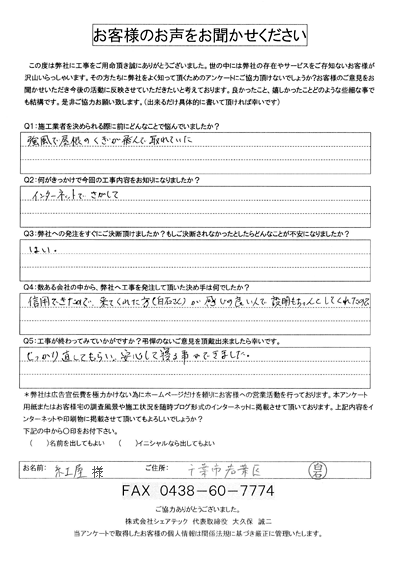 お客様のお声をお聞かせください
この度は弊社に工事をご用命頂き誠にありがとうございました。世の中には弊社の存在やサービスをご存知ないお客様が
沢山いらっしゃいます。その方たちに弊社をよく知って頂くためのアンケートにご協力頂けないでしょうか?お客様のご意見をお
聞かせいただき今後の活動に反映させていただきたいと考えております。良かったこと、嬉しかったことどのような些細な事で
も結構です。是非ご協力お願い致します。(出来るだけ具体的に書いて頂ければ幸いです)
Q1:施工業者を決められる際に前にどんなことで悩んでいましたか?
強風で屋根のくぎが飛んで取れていた
Q2:何がきっかけで今回の工事内容をお知りになりましたか?
インターネットでさがして
Q3:弊社への発注をすぐにご決断頂けましたか?もしご決断されなかったとしたらどんなことが不安になりましたか?
はい。
Q4:数ある会社の中から、弊社へ工事を発注して頂いた決め手は何でしたか?
信用できたので、来てくれた方(白石さん)が感じの良い人で説明もちゃんとしてくれたので
Q5:工事が終わってみていかがですか?弔憚のないご意見を頂戴出来ましたら幸いです。
しっかり直してもらい、安心して寝る事ができました。
*弊社は広告宣伝費を極力かけない為にホームページだけを頼りにお客様への営業活動を行っております。本アンケート
用紙またはお客様宅の調査風景や施工状況を随時ブログ形式のインターネットに掲載させて頂いております。上記内容をイ
ンターネットや印刷物に掲載させて頂いてもよろしいでしょうか?
下記の中から〇印をお付下さい。
( )名前を出してもよい ( )イニシャルなら出してもよい
お名前: 様 ご住所: 千葉市若葉区
FAX 0438-60-7774
ご協力ありがとうございました。
株式会社シェアテック 代表取締役 大久保 誠二
当アンケートで取得したお客様の個人情報は関係法規に基づき厳正に管理いたします。